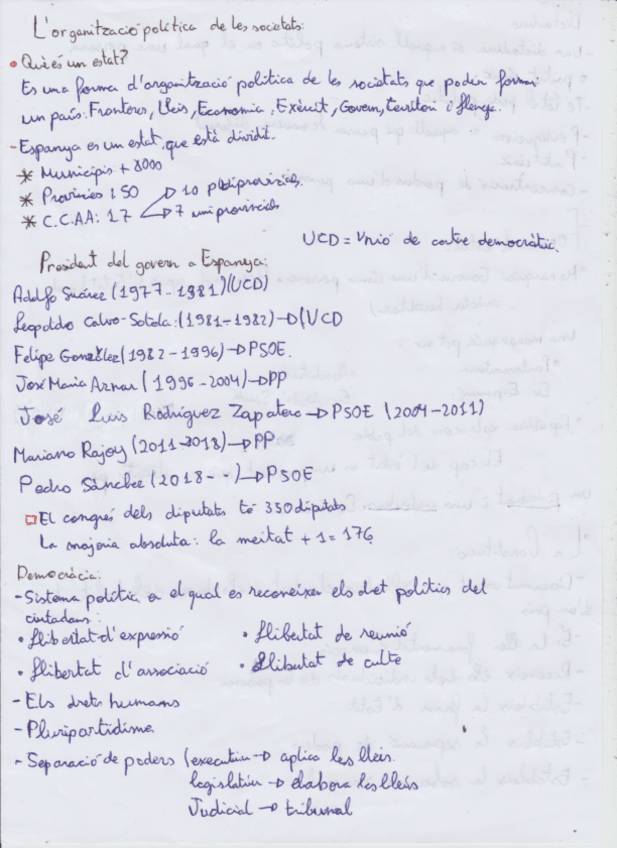 L'organització política de les societats:
• Què és un estat?
Es una forma d'organització política de les societats que poden formar
un país: Fronteres, Lleis, Economia, Exèrcit, Govern, territori i llengua.
- Espanya es un estat, que està dividit.
* Municipis + 8000
* Províncies: 50
* C.C.A.A: 17
→ 10 pluriprovincials.
→ 7 uniprovincials
UCD = Unió de centre democràtic.
President del govern a Espanya:
Adolfo Suárez (1977-1981)(UCD)
Leopoldo Calvo-Sotelo: (1981-1982) → (UCD
Felipe González (1982-1996) → PSOE.
José Maria Aznar (1996-2004) → PP
José Luis Rodríguez Zapatero → PSOE (2004-2011)
Mariano Rajoy (2011-2018) → PP
Pedro Sànchez (2018--) → PSOE
El congrés dels diputats té 350 diputats
La majoria absoluta: la meitat + 1 = 176
Democràcia:
- Sistema polític a el qual es reconeixen els dret polítics del
ciutadans:
• Llibertat d'expressió
• Llibertat de reunió
• Llibertat d'associació
• Llibertat de culte
- Els drets humans
- Pluripartidisme
- Separació de poders (executiu → aplica les lleis.
legislatiu → elabora les lleis
Judicial → tribunal